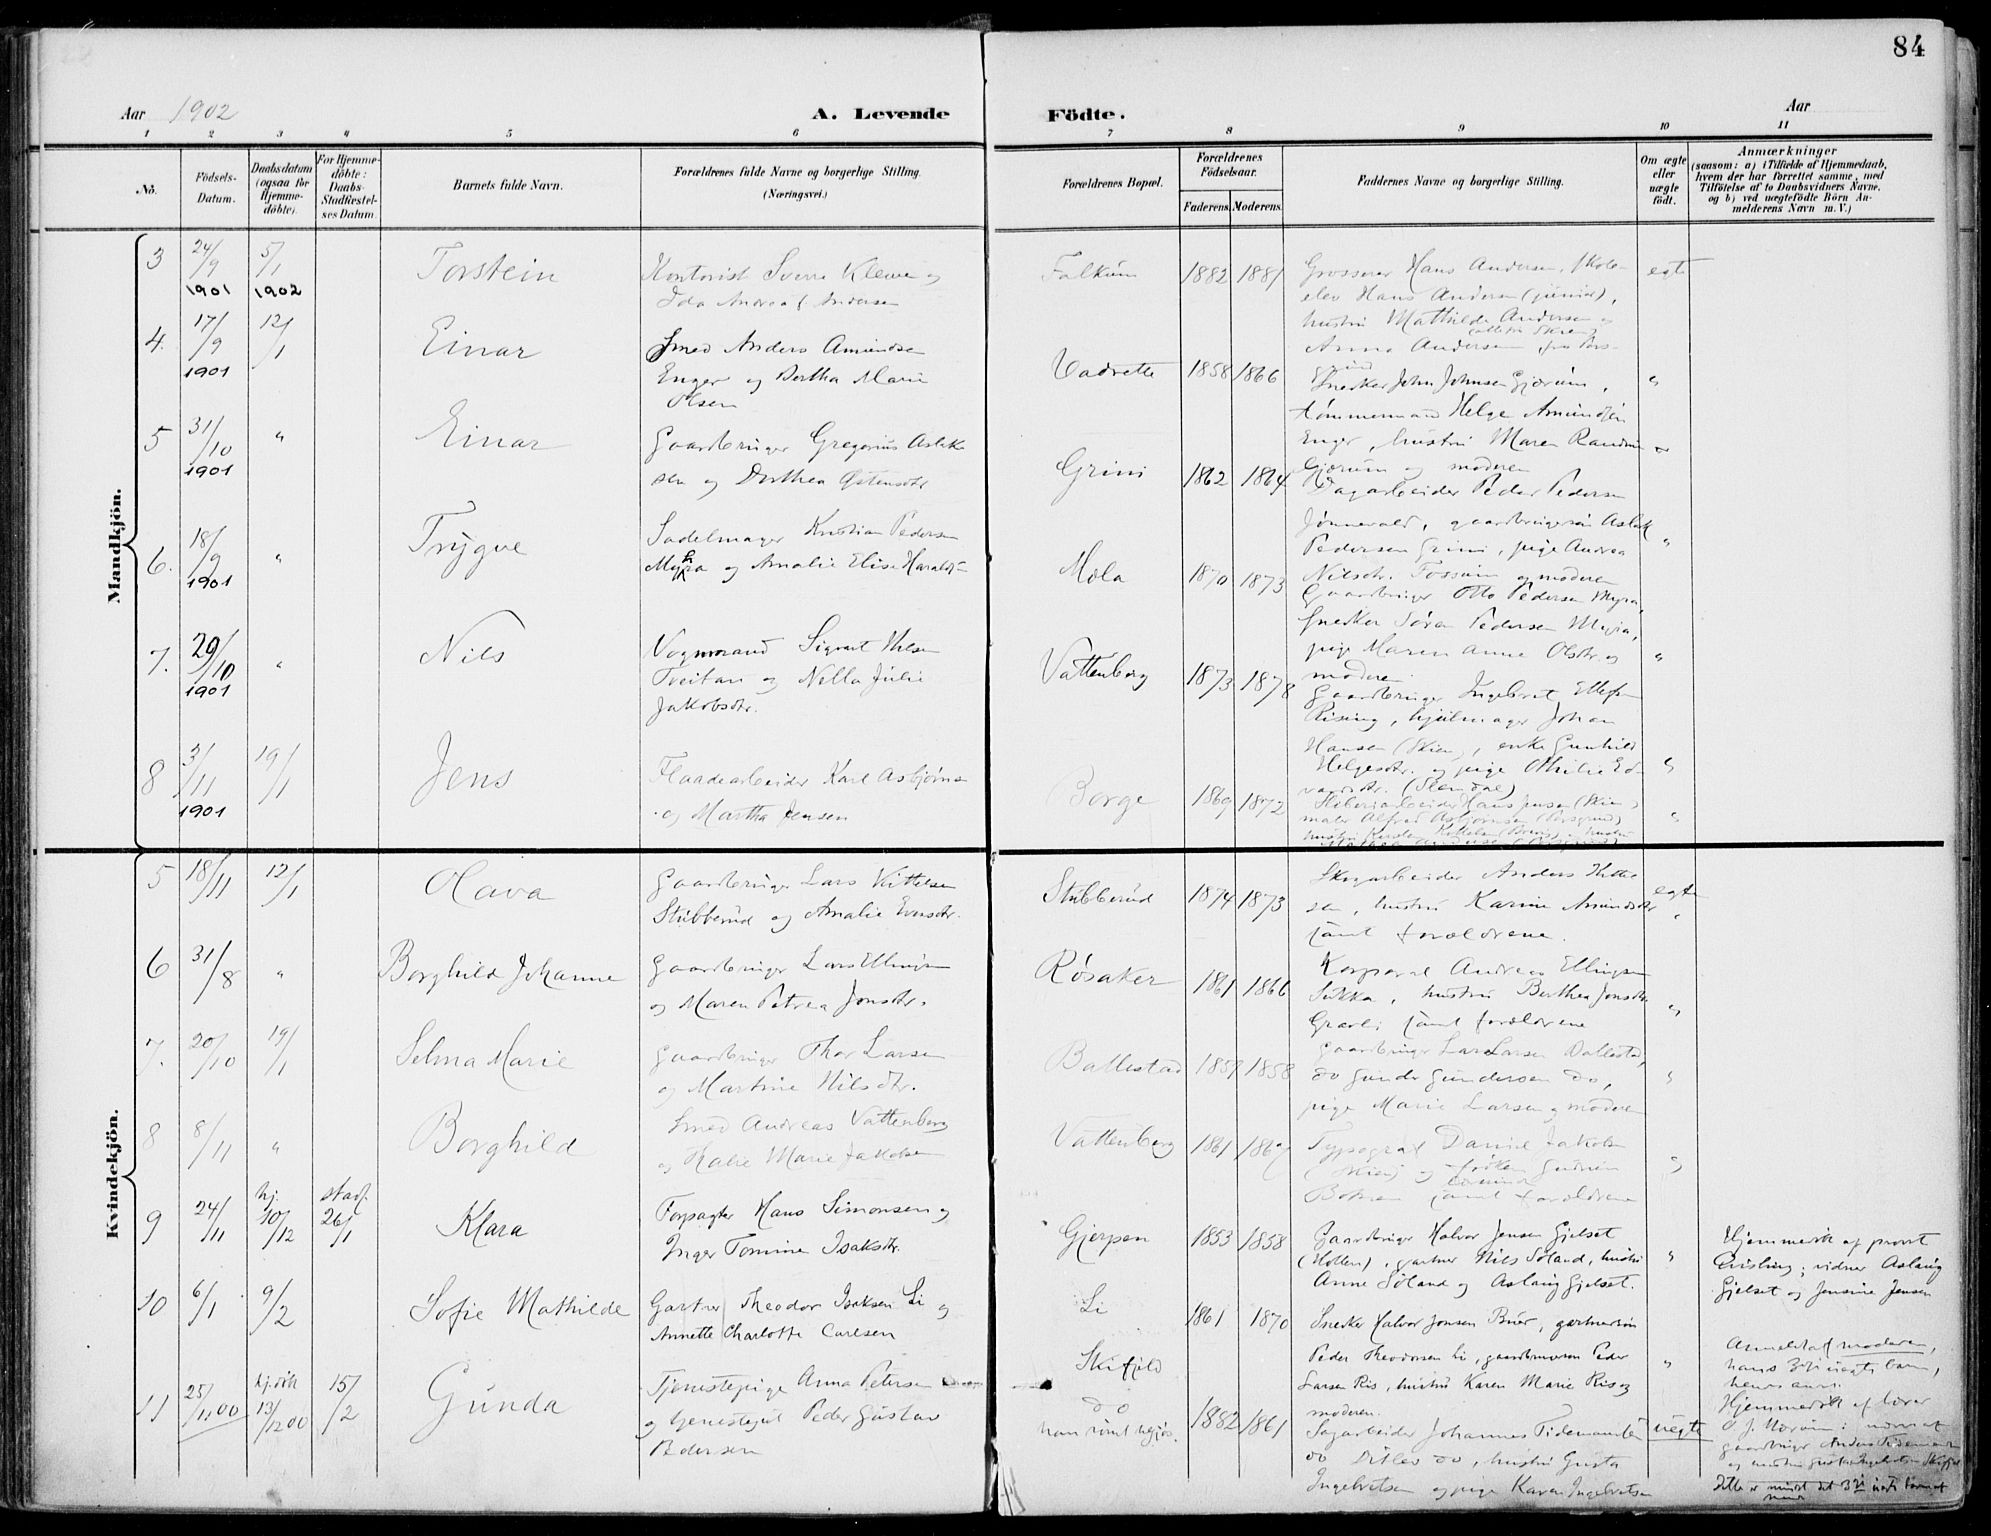 84
Aar 1902
A. Levende Födte.
Aar
1 2 3 4 5 6 7 8 9 10 11
No.
Födsels-Datum.
Daabsdatum (ogsaa for Hjemmedöbte).
For Hjemmedöbte: Daabs-Stadfæstelses Datum.
Barnets fulde Navn.
Forældrenes fulde Navne og borgerlige Stilling.
(Næringsvei.)
Forældrenes Bopæl.
Forældrenes Födselsaar.
Faderens. Moderens.
Faddernes Navne og borgerlige Stilling.
Om ægte eller uægte födt.
Anmærkninger
(saasom: a) i Tilfælde af Hjemmedaab, hvem der har forrettet samme, med Tilföielse af to Daabsvidners Navne, og b) ved uægtefödte Börn Anmelderens Navn m. V.)
Mandkjön.
3 24/9 1901 5/1 1902 Torstein
Kontorist Sverre Kleve og
Ida Andrea f Andersen
Falkum 1882 1881
Grosserer Hans Andersen, skole-
elev Hans Andersen (junior),
hustru Mathilde Andersen
Anna Andersen
egte
4. 17/9 1901 12/1 Einar
Smed Anders Amundsen
Enger og Bertha Marie
Olsen
1858 1866
Snedker John Johnsen Gjærum,
tømmermand Helge Amundsen
Enger, hustru Maren
Gjærum og moderen
"
5 31/10 1901 " Einar
Gaardbruger Gregorius Aslak
sen og Dorthea Østensdtr
Grini 1862 1864
Dagarbeider Peder Pedersen
Jønnevald, gaardbrugersøn Aslak
Pedersen Grini, pige Andrea
Nilsdtr. Fossum og moderen
"
6. 18/9 1901 " Trygve
Sadelmager Kristian Pedersen
Myhra og Amalie Elise
Mæla 1870 1873
Gaardbruger Otto Pedersen Myra,
snedker Søren Pedersen Myra,
pige Maren Anne Olsdtr og
moderen.
"
7. 29/10 1901 " Nils
Vognmand Sigvart Nilsen
Tveitan og Nella Julie
Jakobsdtr.
Vattenberg 1873 1878
Gaardbruger Ingebret Ellefsen
Rising, hjulmager Johan
Hansen (Skien), enke Gunhild
Helgesdtr. og pige Othilie Ed-
vardsdtr.
"
8 3/11 1901 19/1 Jens
Flaadearbeider Karl Asbjørnsen
og Martha Jensen
Borge 1869 1872
Hans Jensen (Skien)
maler Alfred Asbjørnsen (Porsgrund)
"
Kvindekjön.
5 18/11 12/1 Olava
Gaardbruger Lars Kittelsen
Stubberud og Amalie Evensdtr.
Stubberud 1874 1873
Skogarbeider Anders Kittel
sen, hustru Karine Amundsdtr
samt forældrene.
egte
"
6 31/8 " Borghild Johanne
Gaardbruger Lars Ellingsen
og Maren Petrea Jonsdtr.
Røsaker 1861 1866
Korporal Andreas Ellingsen
Sukka, hustru Berthea Jonsdtr
Gravli samt forældrene
"
7. 20/10 19/1 Selma Marie
Gaardbruger Thor Larsen
og Martine Nilsdtr.
Ballestad 1859 1858
Gaardbruger Lars Larsen Ballestad,
do Gunder Gundersen do,
pige Marie Larsen og moderen
"
8 8/11 " Borghild
Smed Andreas Vattenberg
og Thalie Marie Jakobsen
Vattenberg 1861 1867
Typograf Daniel Jakobsen
(Skien) og frøken Gudrun
samt forældrene
"
9 24/11 hj. 10/12 stadf. 26/1 Klara
Forpagter Hans Simonsen og
Inger Tomine Isaksdtr.
Gjerpen 1853 1858
Gaardbruger Halvor Jensen Gjelset
(Hollen), gartner Nils Søland, hustru
Anne Søland og Aslaug Gjelset.
"
Hjemmedøbt af provst
Qvisling; vidner Aslaug
Gjelset og Jensine Jensen
10 6/1 9/2 Sofie Mathilde
Gartner Theodor Isaksen Li og
Annette Charlotte Carlsen
Li 1861 1870
Snedker Halvor Jonsen Buer, gartnersøn
Peder Theodorsen Li, gaardbrugersøn Peder
Larsen Ris, hustru Karen Marie Ris og
moderen.
"
11 25/11 00 hj. døbt 13/12 00 15/2 Gunda
Tjenestepige Anna Petersen
og tjenestegut Peder Gustav
Pedersen
Skifjeld
do
1882 1861
Sagarbeider Johannes Tidemandsen
do Ditlev do, hustru Gusta
Ingebretsen og pige Karen Ingebretsen
uegte
Anmeldt af moderen,
hans 3die uegte barn,
hendes
Hjemmedøbt af lærer
gaardbruger Anders Tidemandsen